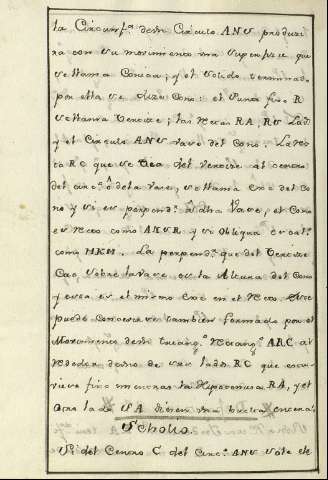 la Circunf.ª deste Circulo ANV produci
ra con su movimiento una superficie que
se llama Conica; y el solido terminado
por ella se dize Cono: el punto fixo R
se llama Vertice; las Rectas RA, RV Lad.
y el Circulo ANV vase del Cono. La Rec
ta RC que se tira del Vertice al centro
del circ.º ô de la vase, se llama Exe del Co
no y si es perpend.r â dha vase, el Cono
es Recto como ANVR y si obliqua es
como HKM. La perpend.r que del Vertice
cae sobre la vase es la Altura del Cono
y esta es el mismo Exe en el Recto. Este
puede Conocerse tambien formado por el
Movimiento de un triang.º Rectang.º ARC al
Rededor de uno de sus lados RC que estu
viere fixo mientras la Hipotenusa RA, y el
otro lado CA dieren una buelta entera.
Scholio
Si del Centro C del circ.º ANV sale el